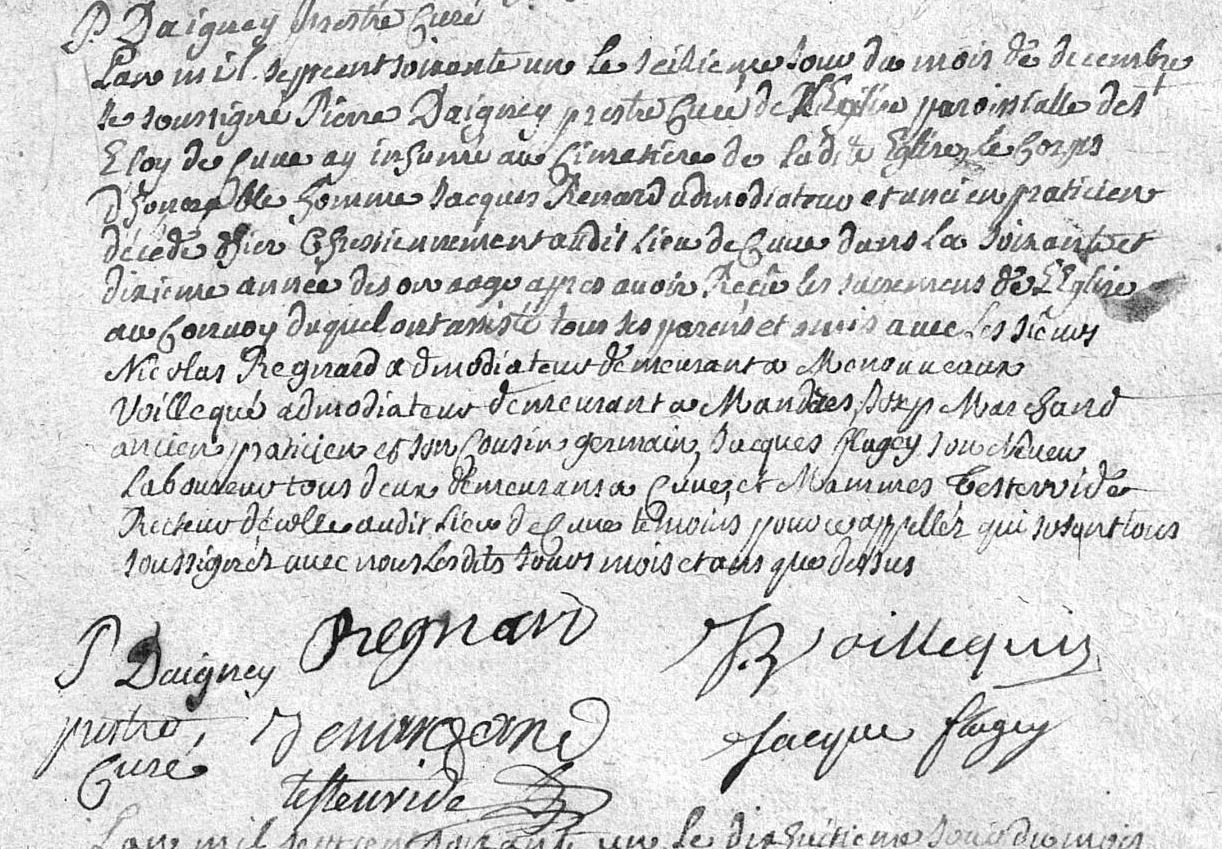 P Daigney prestre Curé
Lan mil sept cent soixante un le seizieme Jour du mois de decembre
Je soussigné Pierre Daigney prestre Curé de L'Eglise paroissialle de St
Eloy de Cuve ay inhumé au Cimetiere de Ladite Eglise le Corps
d'honorable homme Jacques Renard admodiateur et ancien praticien
décédé hier Chrestiennement audit Lieu de Cuve dans La soixante et
dixieme année de son aage apres avoir Recue les sacremens de L'Eglise
au Convoy duquel ont assisté tous ses parens et amis avec Les sieurs
Nicolas Regnard admodiateur demeurant a Menouveaux
Voillequé admodiateur demeurant a Mandres, Marchand
ancien praticien et son Cousin germain, Jacques flagey son Neveu
Laboureur tous deux demeurans a Cuve, et Mammes Testevuide
Recteur décolle audit Lieu de Cuve temoins pour ce appellez qui se sont tous
soussignéz avec nous Lesdits Jours mois et ans que dessus
P Daigney Regnard Voillequin
prestre Marchand Jacque flagey
Curé testeuvide
Lan mil sept cent soixante un le dixhuitieme Jour du mois